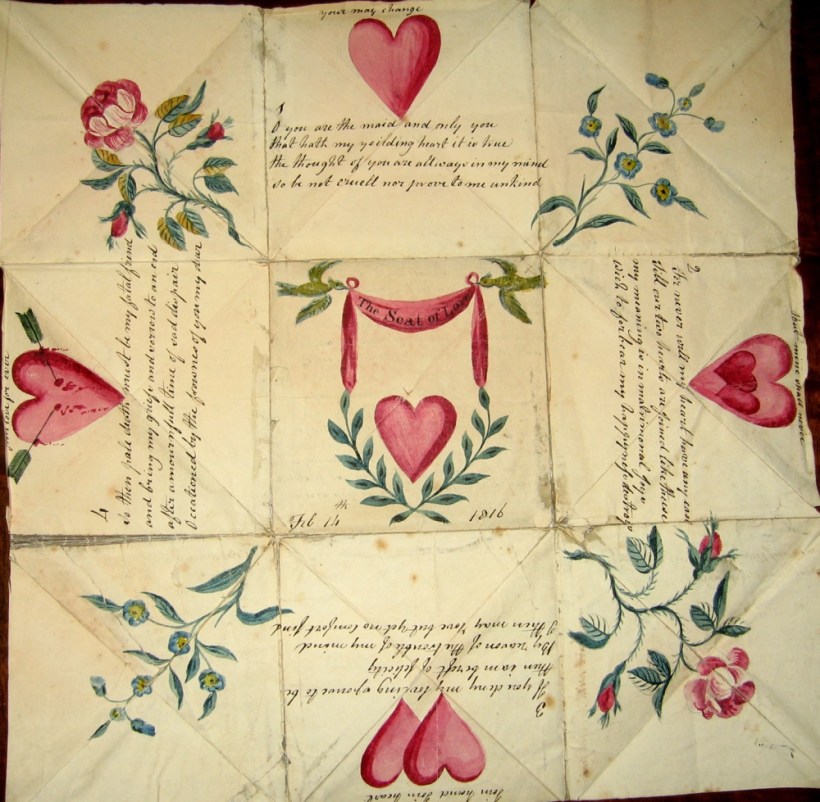 your may change
1
O you are the maid and only you
that hath my yeilding heart it is true
the thought of you are allways in my mind
so be not cruell nor prove to me unkind
The Seat of Love
Feb 14th 1816
2
Ile never will my heart have any
till our two hearts are joined like these
my meaning is in matrimonial tye
wish to forbear my happyness
that mine shall never
3
If you deny my loving spouse to be
then i am bereft of felicity
By reason of the trouble of my mind
I then may love but yet no comfort find
Join hand Join heart
4
is then pale death must be my fatal friend
and bring my grief and sorrow to an end
after a mournfull time of sad dispair
Occationed by the frownes of you my dear
your love for ever